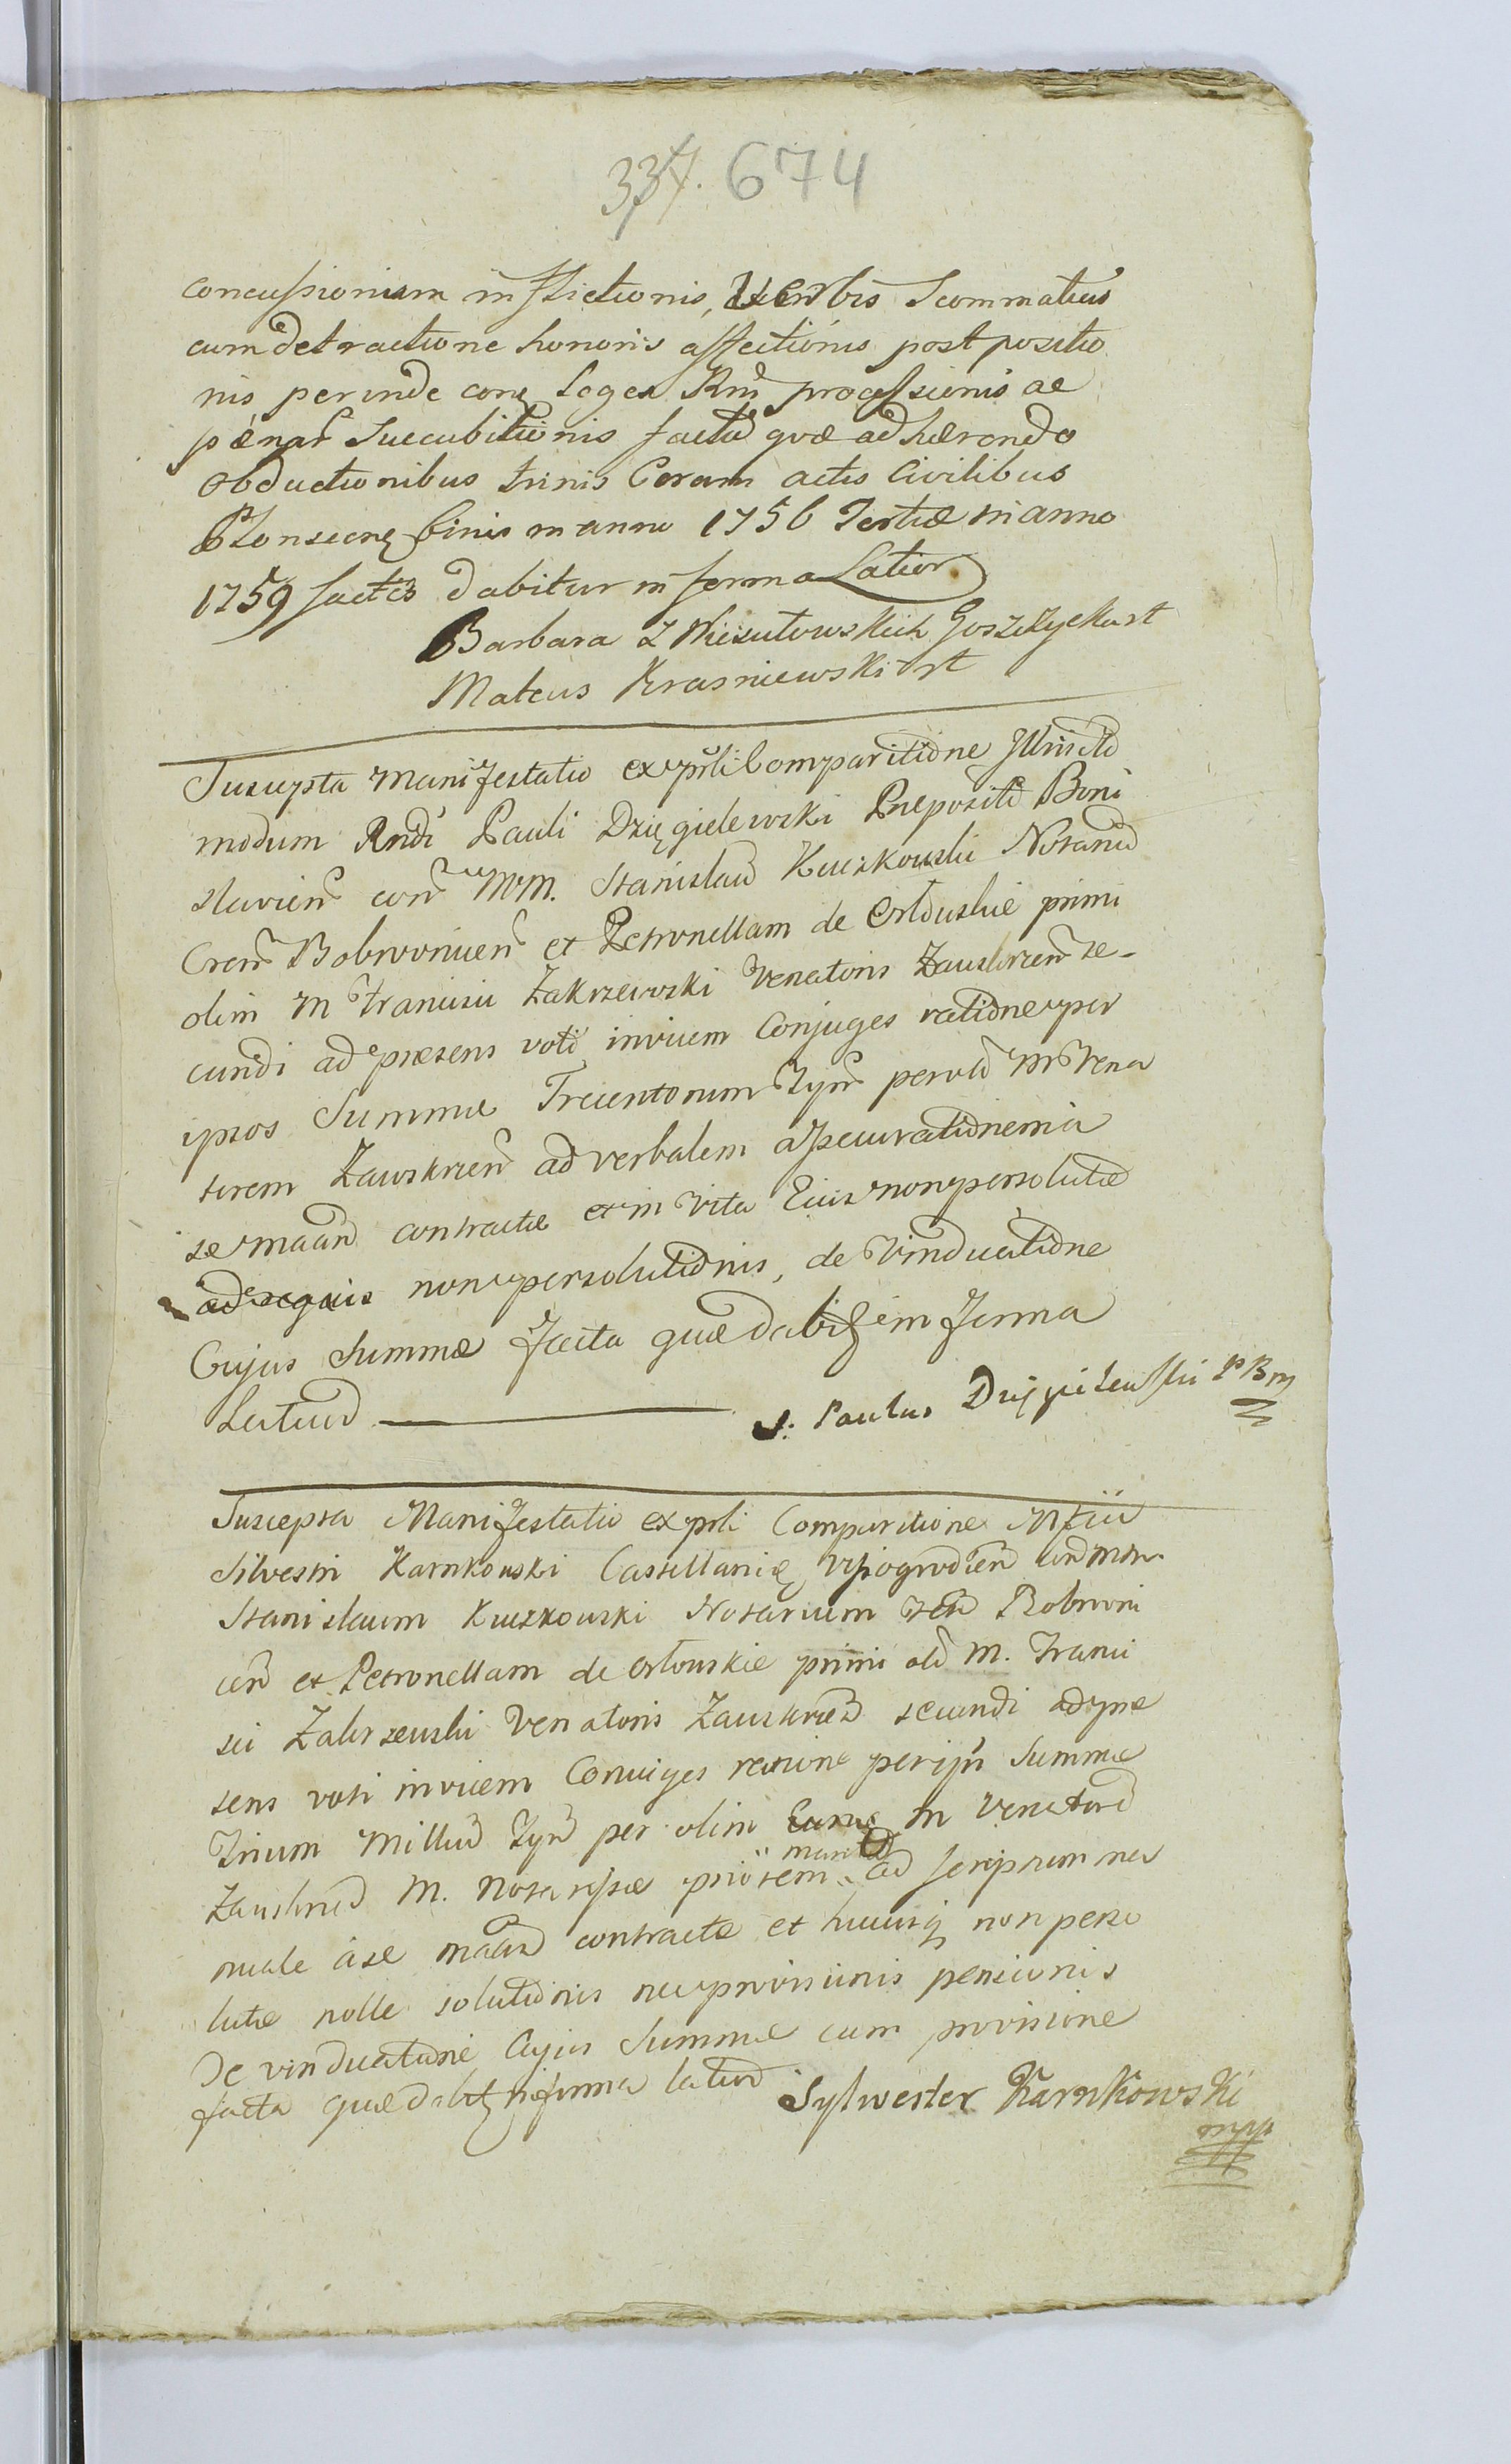 337. 674
concussionum inflictionis, Verbis Scommaticis
cum detractione honoris affectionis post positio
nis perinde conę Leges Rni processionis ac
pænar̃ Succubitionis facta quæ adhærendo
obductionibus trinis Coram actis Civilibus
Plonscenę binis in anno 1756 Tertiæ in anno
1759 factis dabitur in forma Latior
Barbara z Nieszutowskich Goszczycka st
Mateus Krasniewski st
Suscepta Manifestatio ex prli Comparitione Illris ad
modum Rndi Pauli Dzięgielewski Præpositi Boni
slavien̄ con̄ MM. Stanislaũ Kuczkowski Notariũ
Cren̄ Bobrovnicen̄ et Petronellam de primi
olim M Francisci Zakrzewski Venatoris Zauskrzen̄ se-
cundi ad præsens voti invicem Conjuges ratione per
ipsos Summæ Trecentorum Tyn̄ per olĩ M Vena
torem Zawskrzen̄ ad verbalem assecurationem a
se maan̄ contractæ et in vita Eius non persolutæ
non persolutionis, de Vindicatione
Cujus Summæ facta quæ dabitʒ in forma
Latiori
S: Paulus Dzięgielewski P B m
Suscepta Manifestatio ex prli Comparitione Mfici
Silvestri Karnkowski Castellanię Wyszogrodien̄ con̄ MM.
Stanislaum Kuczkowski Notarium Bobrovni
cen̄ et Petronellam de Orłowskie primi olĩ M. Franci
sci Zakrzewski Venatoris Zauskrzen̄ secundi ad præ
sens voti invicem Coniuges ratione per ipsos Summæ
Trium Milliũ Tyn̄ per olim M Venatorẽ
Zauskrzen̄ M. Notarissæ priorem maritũ ad scriptum ma
nuale a se maan̄ contractæ et hucusqʒ non perso
lutæ nolle solutionis nec provisionis pensionis
De vindicatione Cujus Summæ cum provisione
facta quæ dabitʒ in forma latiori Sylwester Karnkowski
mpp